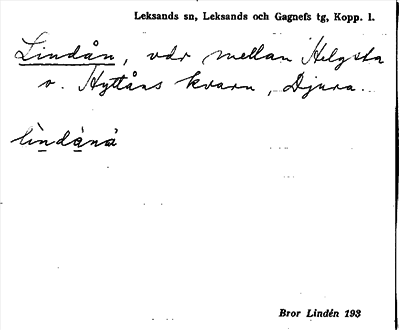 Leksands sn, Leksands och Gagnefs tg, Kopp. l.
Lindån, vdr mellan Helgsta
o. Hyttåns kvarn, Djura.
Bror Lindén 193